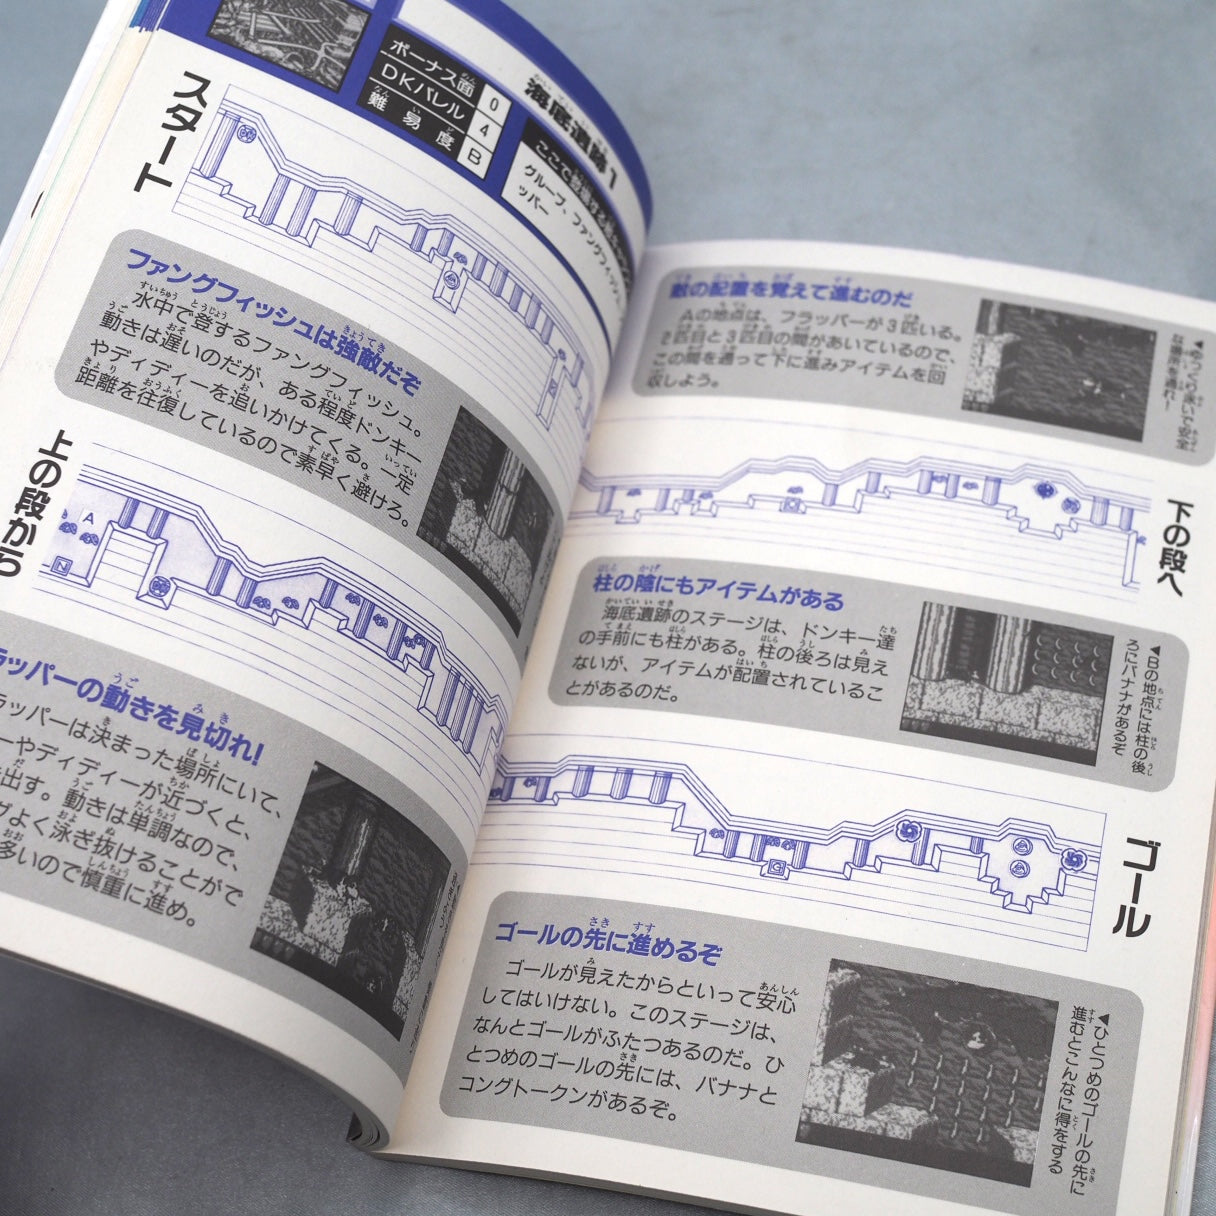 海底遺跡1
ボーナス面 0
DKバレル 4
難易度 B
グループ、ファングフィッシュ
ッパー
スタート
ファングフィッシュは強敵だぞ
水中で登するファングフィッシュ。
動きは遅いのだが、ある程度ドンキー
やディディーを追いかけてくる。一定
距離を往復しているので素早く避けろ。
上の段から
A
N
ラッパーの動きを見切れ!
ラッパーは決まった場所にいて、
ーやディディーが近づくと、
出す。動きは単調なので、
グよく泳ぎ抜けることがで
多いので慎重に進め。
敵の配置を覚えて進むのだ
Aの地点は、フラッパーが3匹いる。
2匹目と3匹目の間があいているので、
この間を通って下に進みアイテムを回
収しよう。
◀ゆっくり泳いで安全
な場所を通れ!
下の段へ
柱の陰にもアイテムがある
海底遺跡のステージは、ドンキー達
の手前にも柱がある。柱の後ろは見え
ないが、アイテムが配置されているこ
とがあるのだ。
◀Bの地点には柱の後
ろにバナナがあるぞ
G
ゴール
ゴールの先に進めるぞ
ゴールが見えたからといって安心
してはいけない。このステージは、
なんとゴールがふたつあるのだ。ひ
とつめのゴールの先には、バナナと
コングトークンがあるぞ。
◀ひとつめのゴールの先に
進むとこんなに得をする